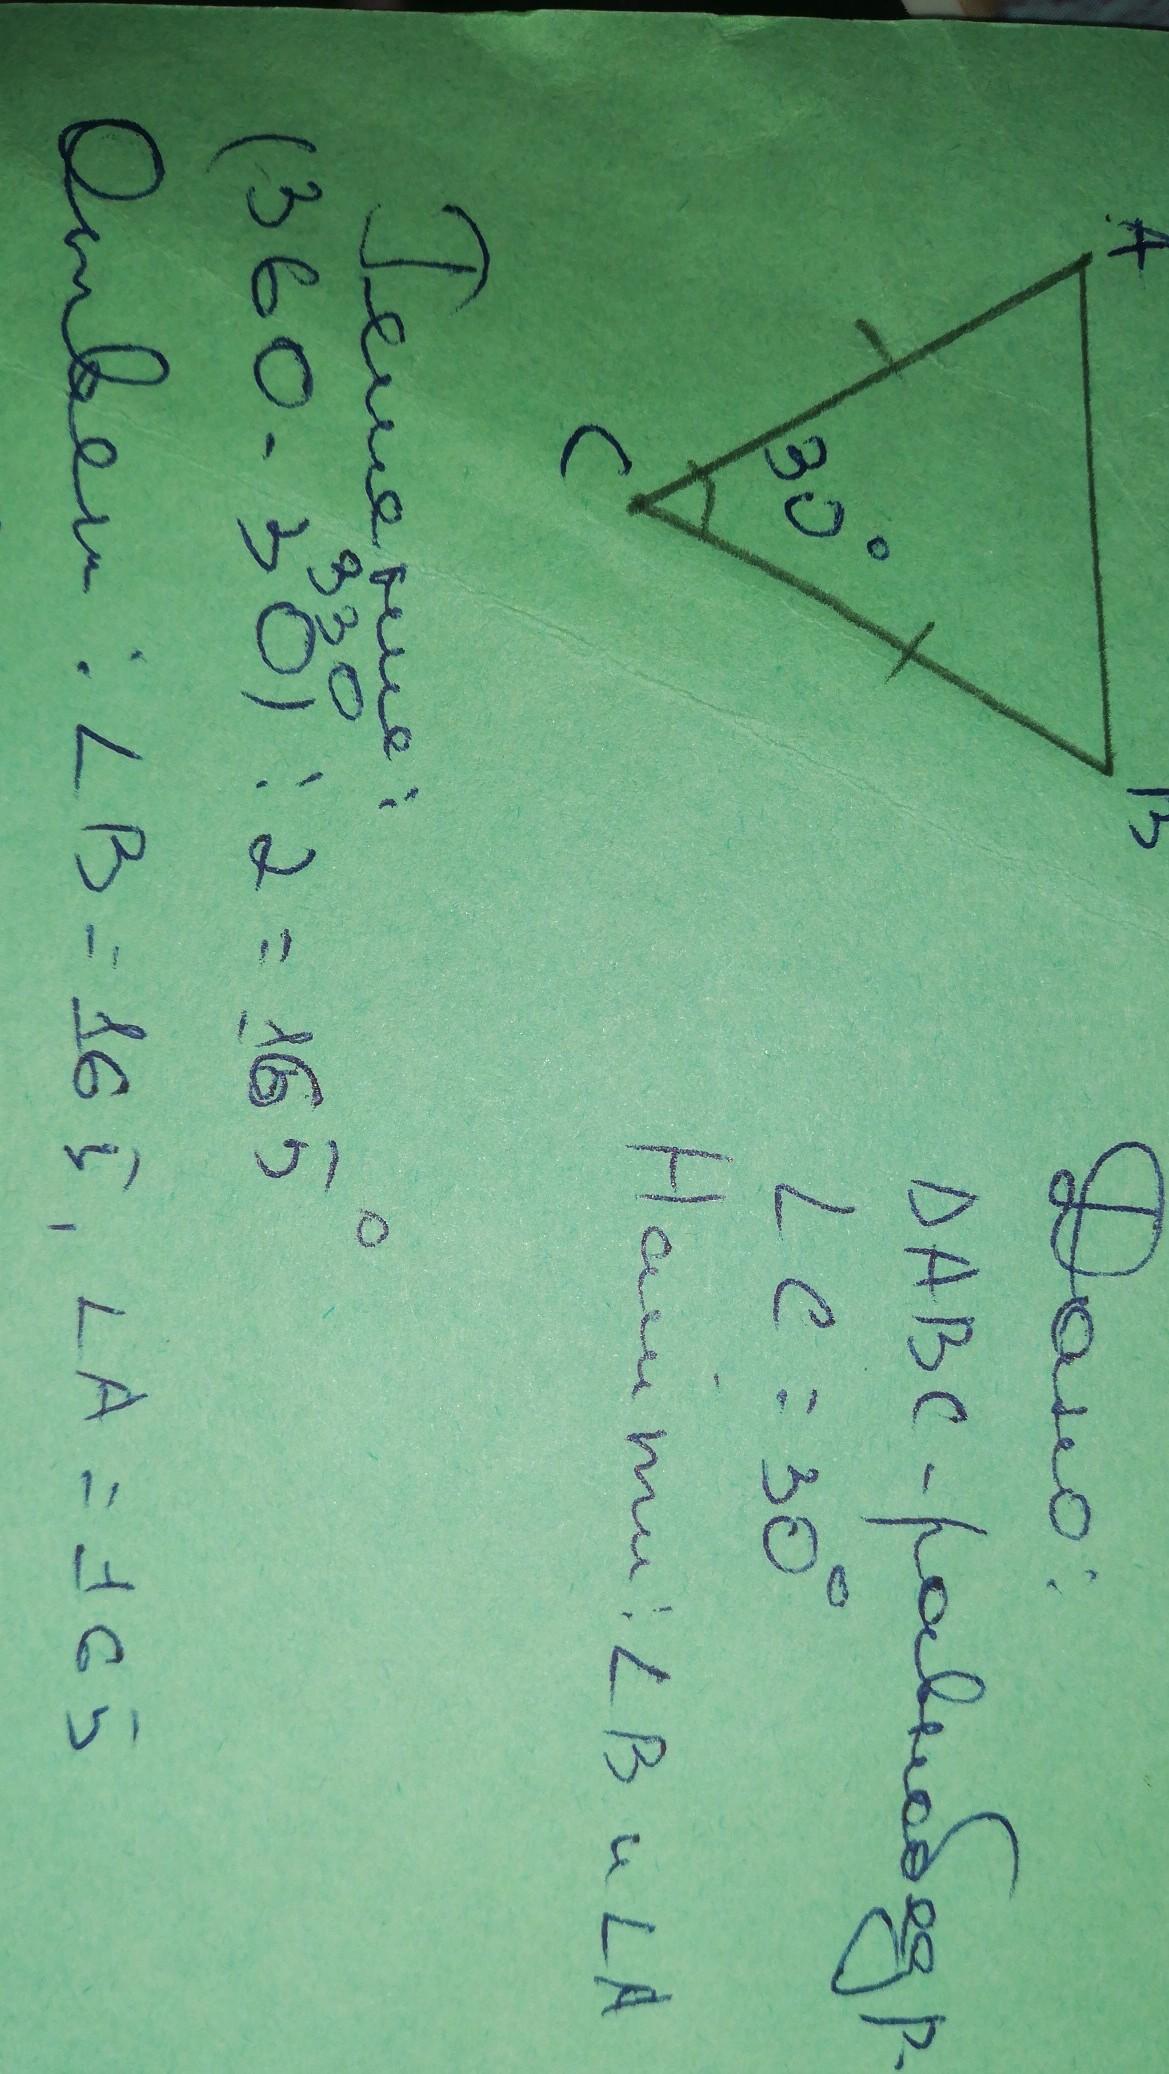 A
B
C
30°
Дано:
ΔABC - равнобедр.
∠C = 30°
Найти: ∠B и ∠A
Решение:
330
(360 - 30) : 2 = 165°
Ответ: ∠B = 165, ∠A = 165